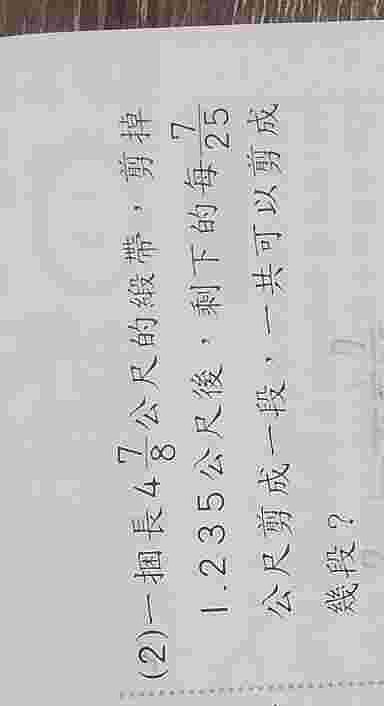 (2)一捆長4 7/8 公尺的緞帶，剪掉
1.235公尺後，剩下的每 7/25
公尺剪成一段，一共可以剪成
幾段？